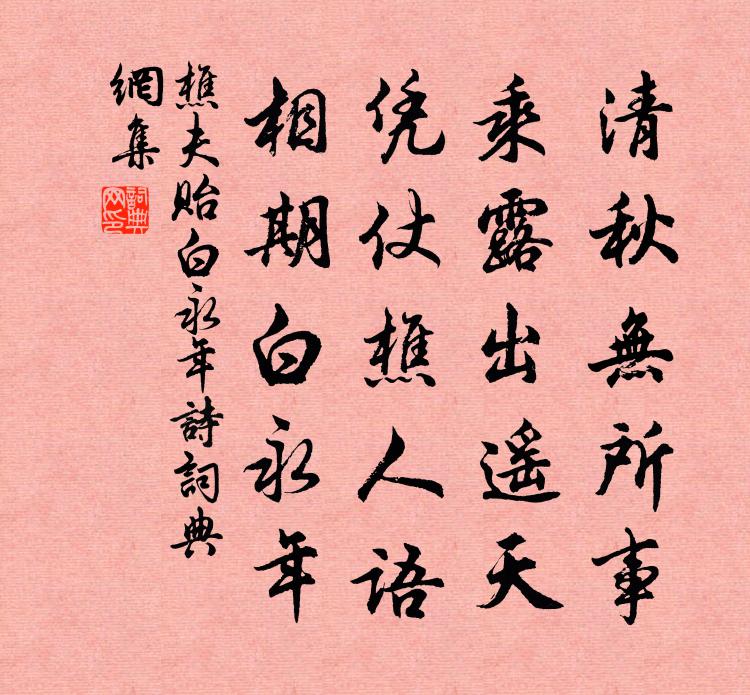 清秋無所事
乘露出遥天
凭仗樵人語
相期白永年
樵夫貽白永年詩詞典
網集
詞典
网印